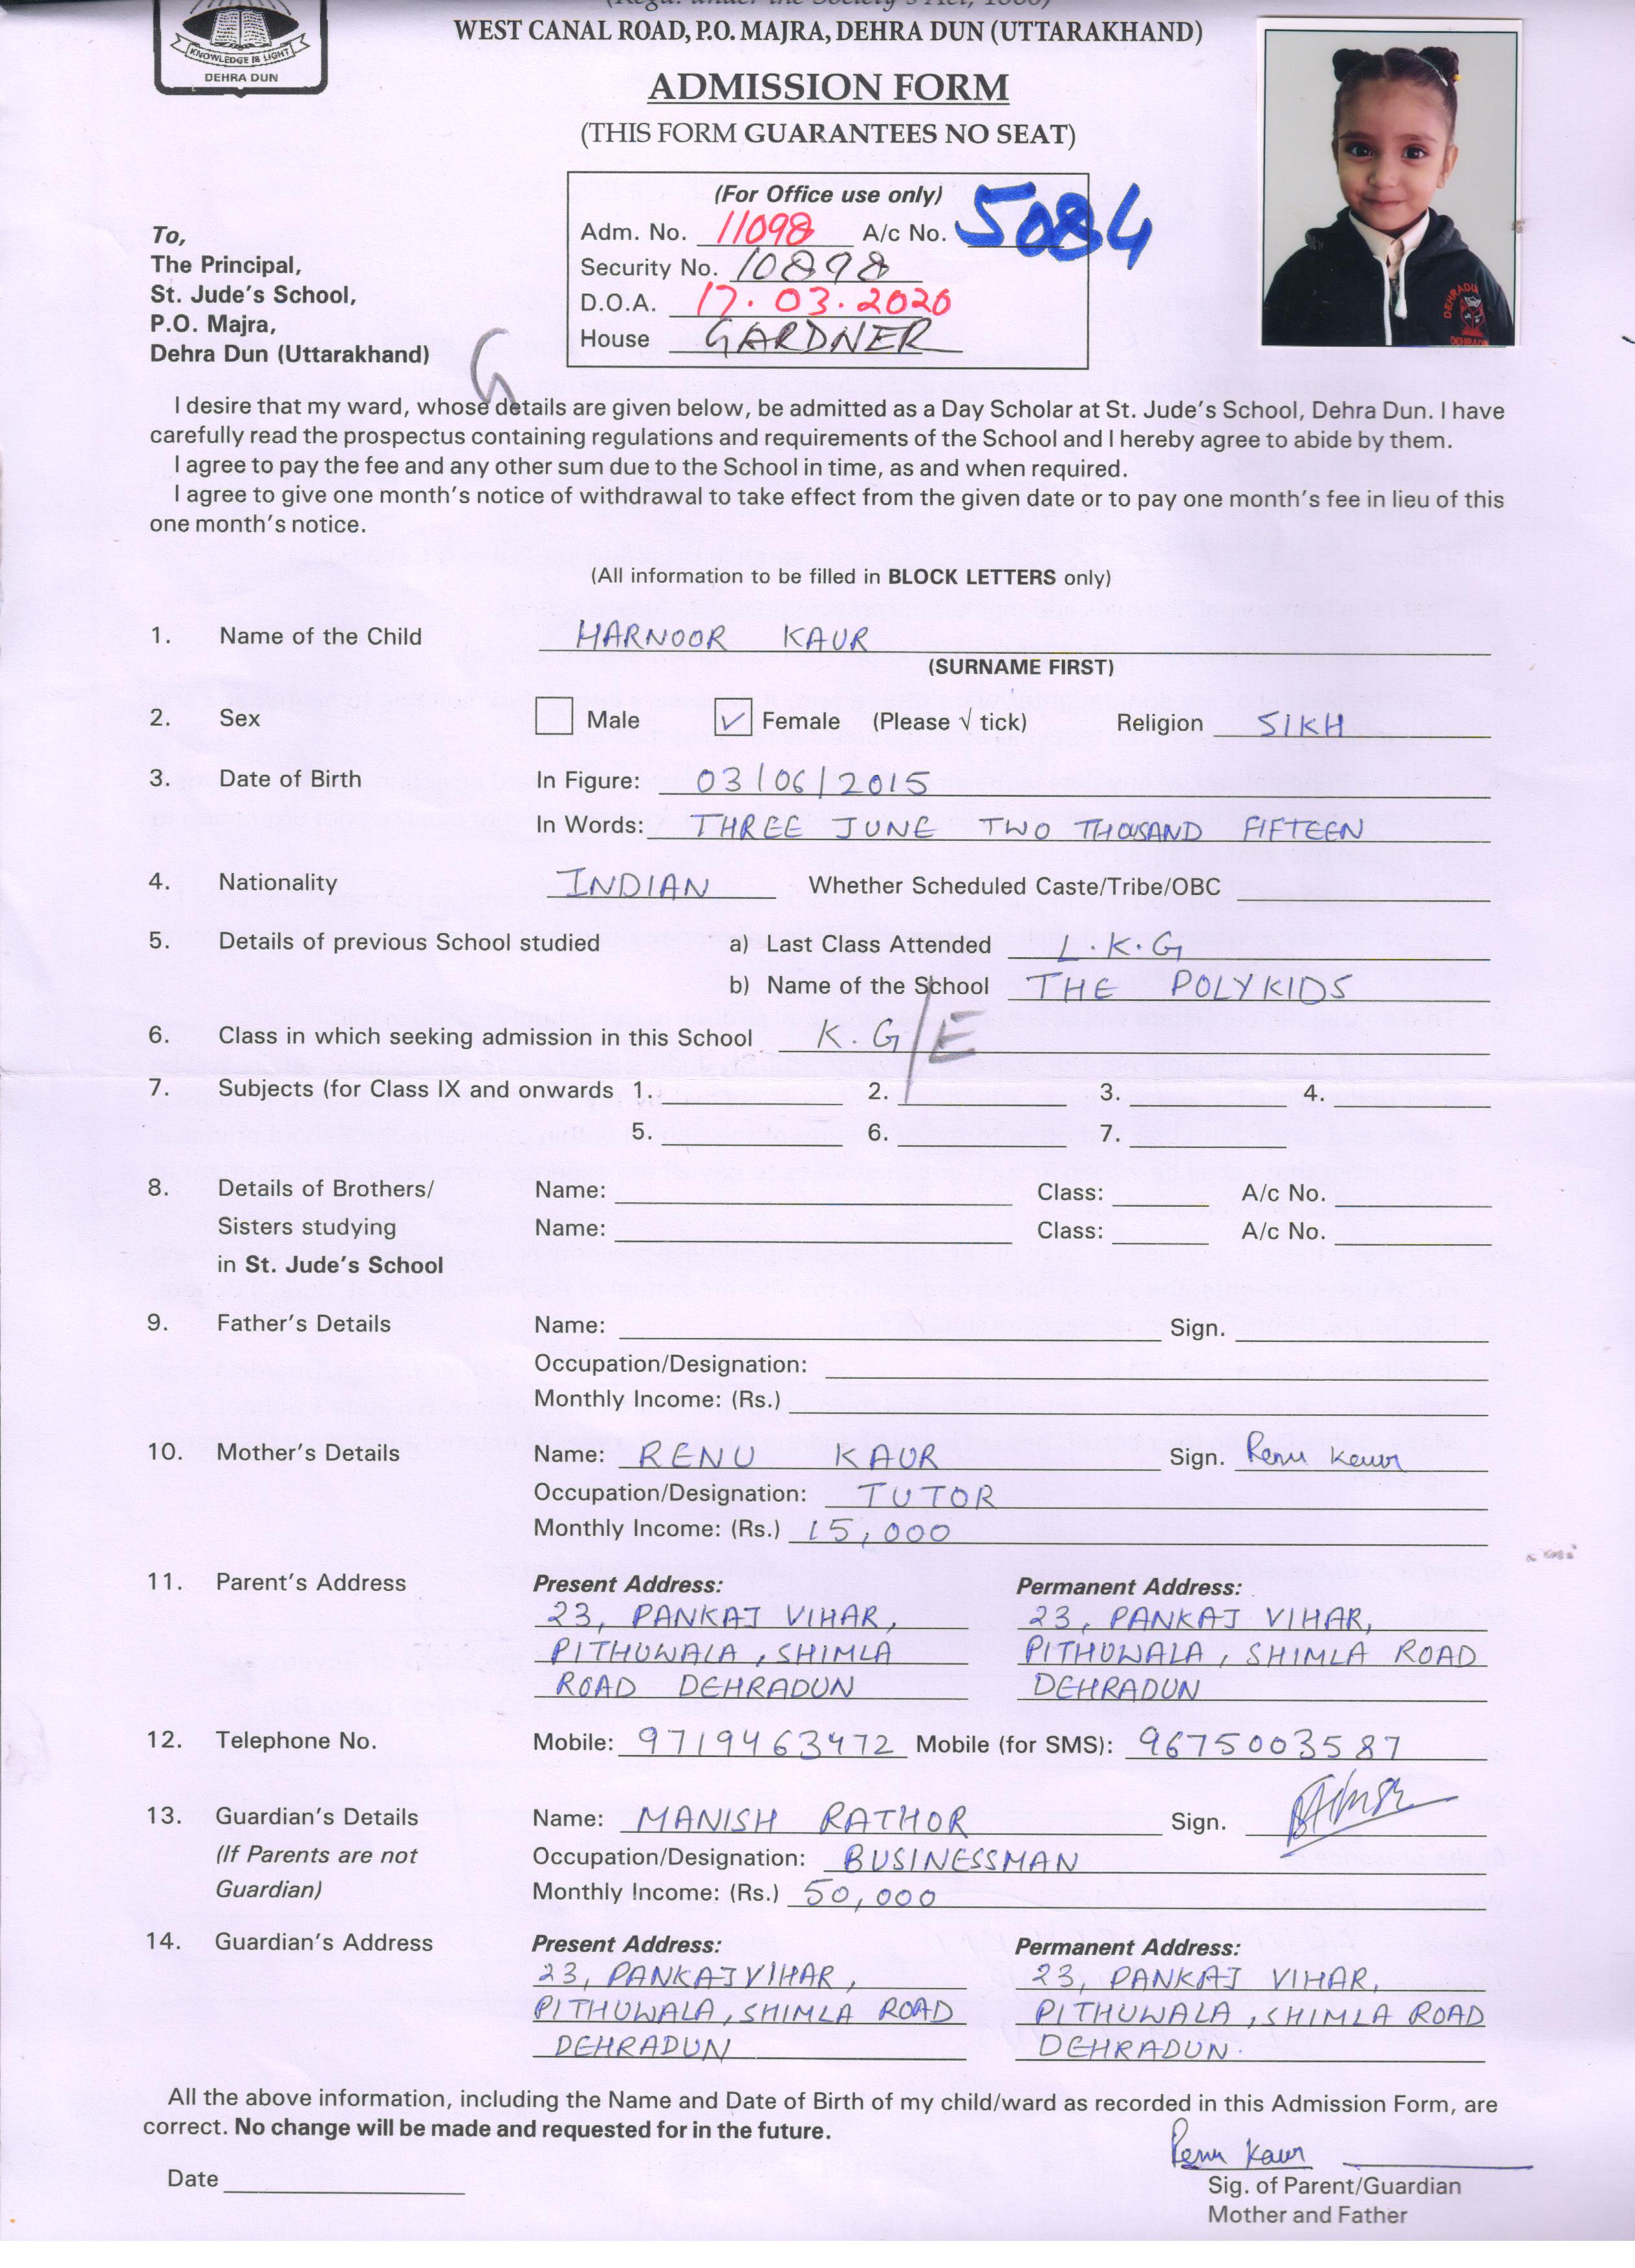 WEST CANAL ROAD, P.O. MAJRA, DEHRA DUN (UTTARAKHAND)
KNOWLEDGE IS LIGHT
DEHRA DUN
ADMISSION FORM
(THIS FORM GUARANTEES NO SEAT)
(For Office use only)
Adm. No. 11098 A/c No. 5084
Security No. 10898
D.O.A. 17.03.2020
House GARDNER
To,
The Principal,
St. Jude's School,
P.O. Majra,
Dehra Dun (Uttarakhand)
G
DEHRADUN
I desire that my ward, whose details are given below, be admitted as a Day Scholar at St. Jude's School, Dehra Dun. I have
carefully read the prospectus containing regulations and requirements of the School and I hereby agree to abide by them.
I agree to pay the fee and any other sum due to the School in time, as and when required.
I agree to give one month's notice of withdrawal to take effect from the given date or to pay one month's fee in lieu of this
one month's notice.
(All information to be filled in BLOCK LETTERS only)
1. Name of the Child HARNOOR KAUR
(SURNAME FIRST)
2. Sex Male ✓ Female (Please √ tick) Religion SIKH
3. Date of Birth In Figure: 03/06/2015
In Words: THREE JUNE TWO THOUSAND FIFTEEN
4. Nationality INDIAN Whether Scheduled Caste/Tribe/OBC
5. Details of previous School studied a) Last Class Attended L.K.G
b) Name of the School THE POLYKIDS
6. Class in which seeking admission in this School K.G/E
7. Subjects (for Class IX and onwards 1. 2. 3. 4.
5. 6. 7.
8. Details of Brothers/ Name: Class: A/c No.
Sisters studying Name: Class: A/c No.
in St. Jude's School
9. Father's Details Name: Sign.
Occupation/Designation:
Monthly Income: (Rs.)
10. Mother's Details Name: RENU KAUR Sign. Renu Kaur
Occupation/Designation: TUTOR
Monthly Income: (Rs.) 15,000
11. Parent's Address Present Address: Permanent Address:
23, PANKAJ VIHAR, 23, PANKAJ VIHAR,
PITHUWALA, SHIMLA PITHUWALA, SHIMLA ROAD
ROAD DEHRADUN DEHRADUN
12. Telephone No. Mobile: 9719463472 Mobile (for SMS): 9675003587
13. Guardian's Details Name: MANISH RATHOR Sign.
(If Parents are not Occupation/Designation: BUSINESSMAN
Guardian) Monthly Income: (Rs.) 50,000
14. Guardian's Address Present Address: Permanent Address:
23, PANKAJ VIHAR, 23, PANKAJ VIHAR,
PITHUWALA, SHIMLA ROAD PITHUWALA, SHIMLA ROAD
DEHRADUN DEHRADUN.
All the above information, including the Name and Date of Birth of my child/ward as recorded in this Admission Form, are
correct. No change will be made and requested for in the future.
Renu Kaur
Date
Sig. of Parent/Guardian
Mother and Father